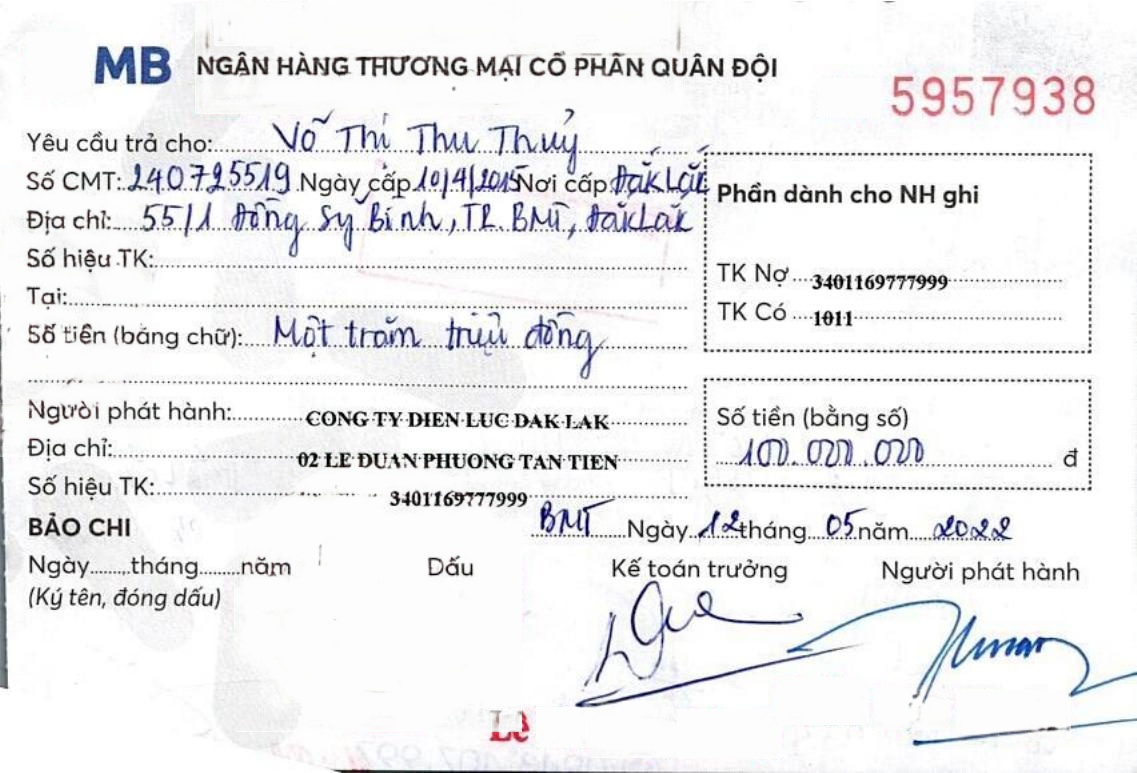 MB NGÂN HÀNG THƯƠNG MẠI CỔ PHẦN QUÂN ĐỘI
5957938
Yêu cầu trả cho: Võ Thị Thu Thuỷ
Số CMT: 240725519 Ngày cấp 10/4/2015 Nơi cấp Đăk Lăk
Địa chỉ: 55/1 Đồng Sỹ Bình, TP. BMT, Đăk Lăk
Số hiệu TK:
Tại:
Số tiền (bằng chữ): Một trăm triệu đồng
Phần dành cho NH ghi
TK Nợ 3401169777999
TK Có 1011
Người phát hành: CONG TY DIEN LUC DAK LAK
Địa chỉ: 02 LE DUAN PHUONG TAN TIEN
Số hiệu TK: 3401169777999
Số tiền (bằng số)
100.000.000 đ
BẢO CHI
BMT Ngày 12 tháng 05 năm 2022
Ngày tháng năm Dấu Kế toán trưởng Người phát hành
(Ký tên, đóng dấu)